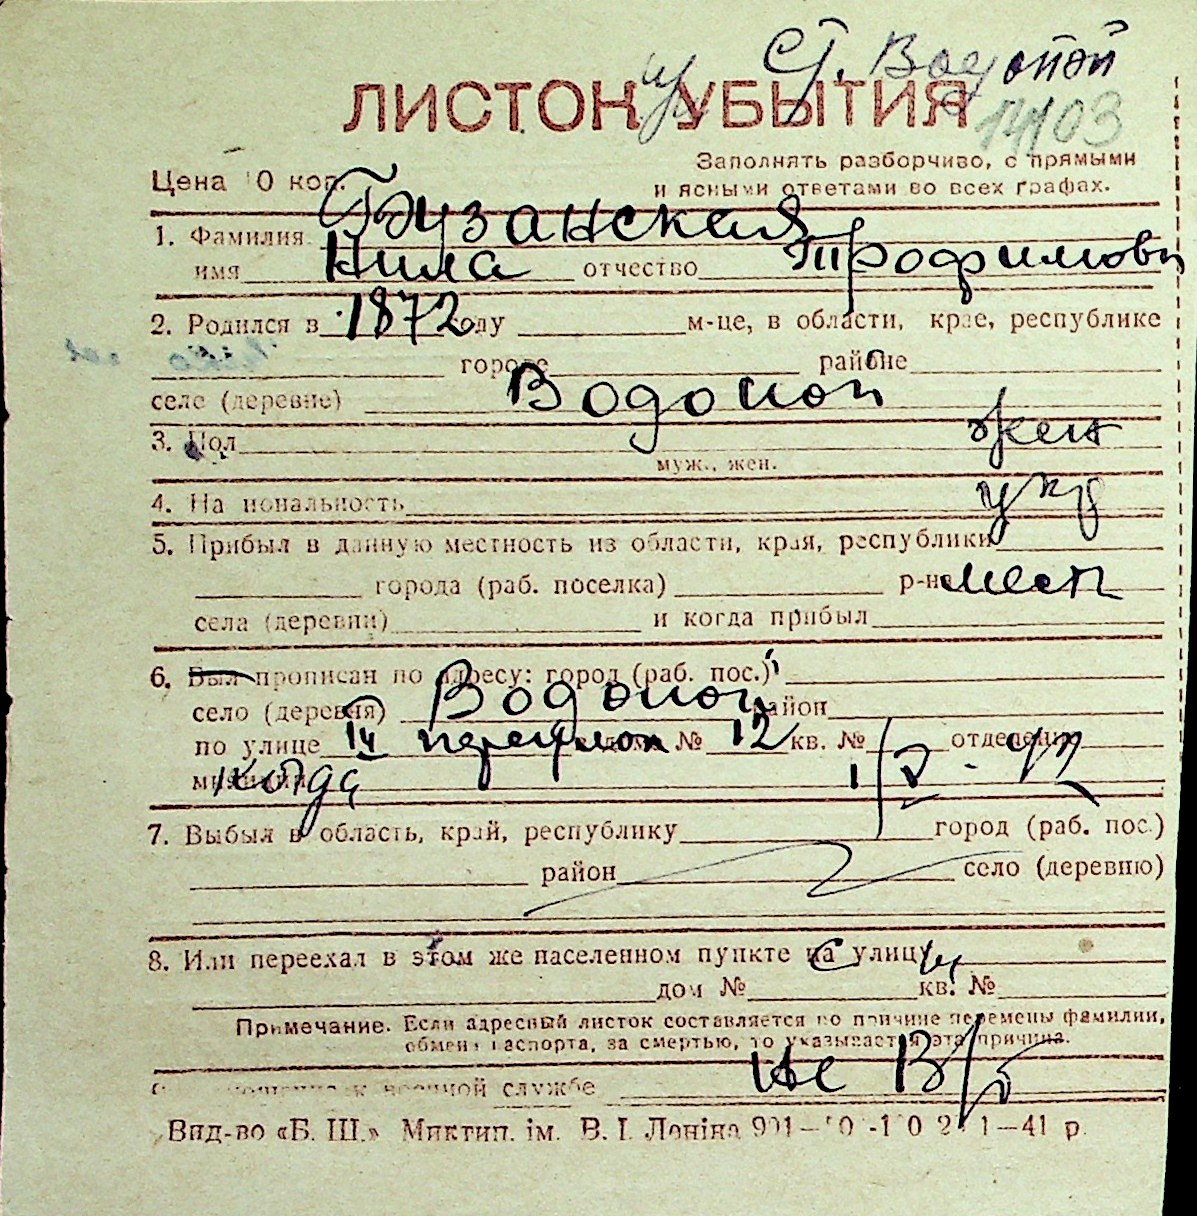 ст. Водопой
ЛИСТОК УБЫТИЯ
14103
Заполнять разборчиво, с прямыми
Цена 10 коп.
и ясными ответами во всех графах.
1. Фамилия Бузанская
имя Нила отчество Трофимовн
2. Родился в 1872 году м-це, в области, крае, республике
городе районе
селе (деревне) Водопой
3. Пол жен
муж., жен.
4. Национальность укр
5. Прибыл в данную местность из области, края, республики
города (раб. поселка) р-на мест
села (деревни) и когда прибыл
6. Был прописан по адресу: город (раб. пос.)
село (деревня) Водопой район
по улице 14 дома № 12 кв. № отделения
милиции когда 1/V - 42
7. Выбыл в область, край, республику город (раб. пос.)
район село (деревню)
8. Или переехал в этом же населенном пункте на улицу
дом № кв. №
Примечание. Если адресный листок составляется по причине перемены фамилии,
обмена паспорта, за смертью, то указывается эта причина.
к военной службе не В/об
Вид-во «Б. Ш.» Миктип. ім. В. І. Леніна 1—41 р.